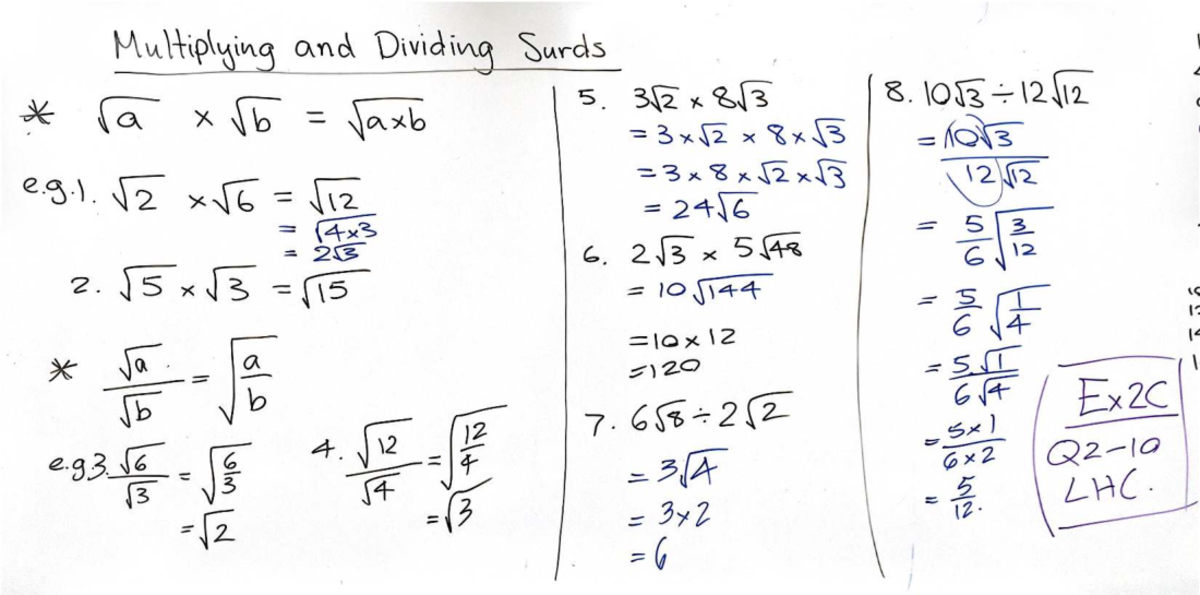 Multiplying and Dividing Surds
* √a × √b = √a×b
e.g.1. √2 × √6 = √12
= √4×3
= 2√3
2. √5 × √3 = √15
* √a/√b = √(a/b)
e.g3. √6/√3 = √(6/3)
= √2
4. √12/√4 = √(12/4)
= √3
5. 3√2 × 8√3
= 3×√2 × 8×√3
= 3×8×√2×√3
= 24√6
6. 2√3 × 5√48
= 10√144
= 10×12
= 120
7. 6√8 ÷ 2√2
= 3√4
= 3×2
= 6
8. 10√3 ÷ 12√12
= 10√3/12√12
= 5/6 √(3/12)
= 5/6 √(1/4)
= 5√1/6√4
= 5×1/6×2
= 5/12.
Ex2C
Q2-10
LHC.